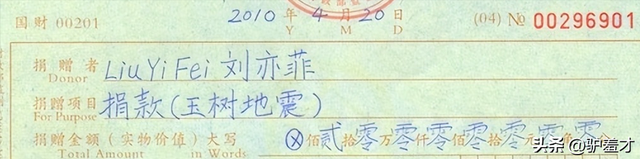 国财 00201 2010 年 4 月 20 日 (04) № 00296901
Y M D
捐赠者 LiuYiFei 刘亦菲
Donor
捐赠项目 捐款(玉树地震)
For Purpose
捐赠金额(实物价值)大写 ⊗佰贰拾零万零仟零佰零拾零元零角零分
Total Amount in Words
头条 @驴羞才